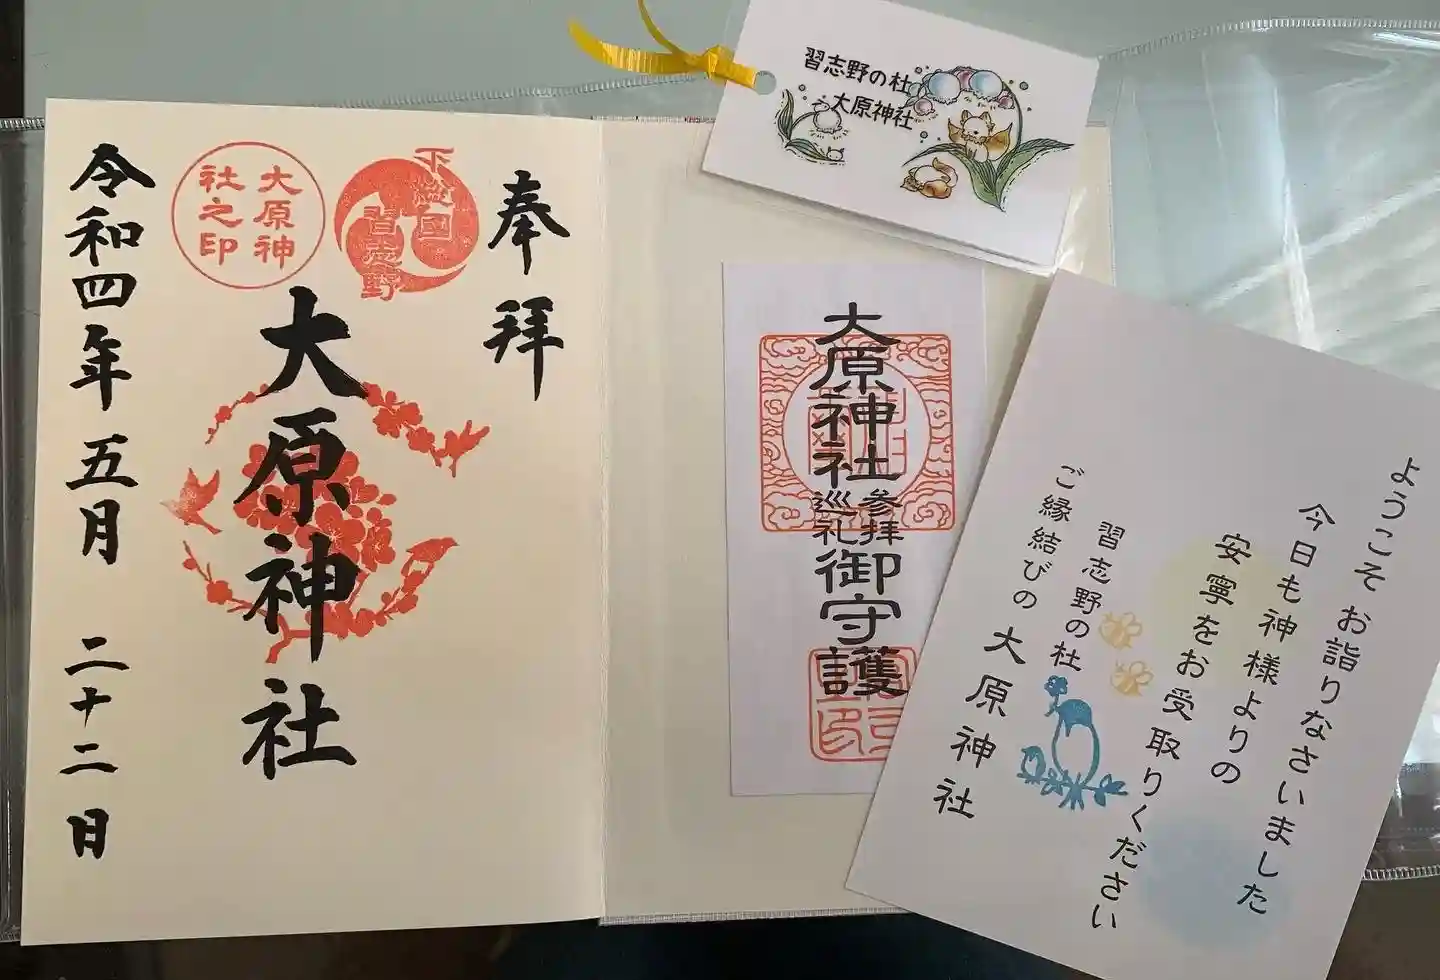 奉拝
下総國
習志野
大原神
社之印
大原神社
令和四年五月二十二日
習志野の杜
大原神社
大原神社
参拝
巡礼
御守護
ようこそお詣りなさいました
今日も神様よりの
安寧をお受取りください
習志野の杜
ご縁結びの大原神社